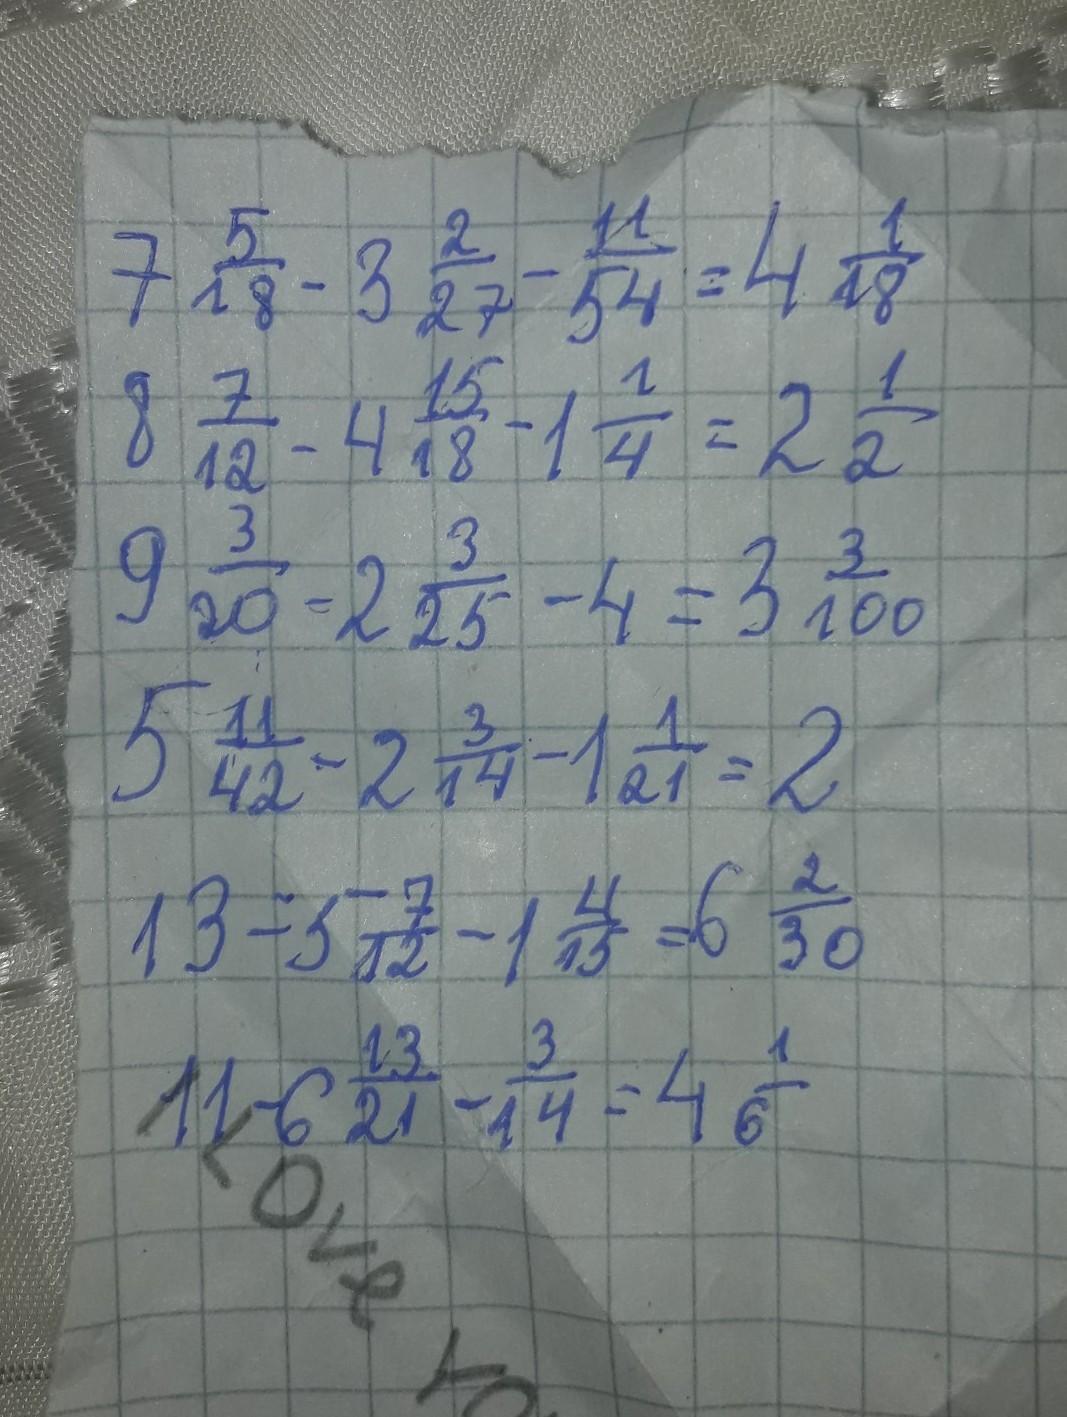 7 5/18 - 3 2/27 - 11/54 = 4 1/18
8 7/12 - 4 15/18 - 1 1/4 = 2 1/2
9 3/20 - 2 3/25 - 4 = 3 3/100
5 11/42 - 2 3/14 - 1 1/21 = 2
13 - 5 7/12 - 1 4/15 = 6 2/30
11 - 6 13/21 - 3/14 = 4 1/6
Love